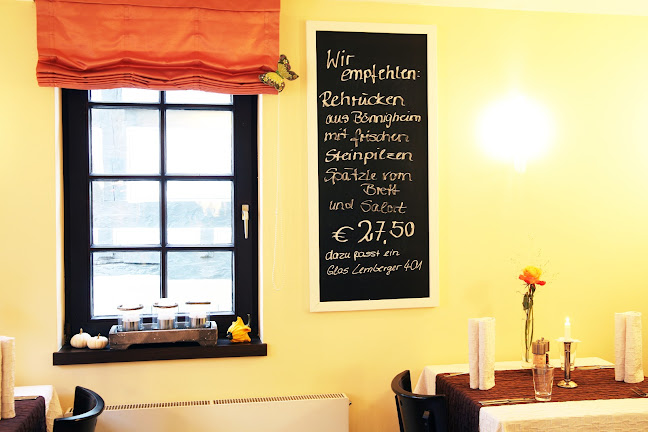 Wir
empfehlen:
Rehrücken
aus Bönnigheim
mit frischen
Steinpilzen
Spätzle vom
Brett
und Salat
€ 27,50
dazu passt ein
Glas Lemberger 401